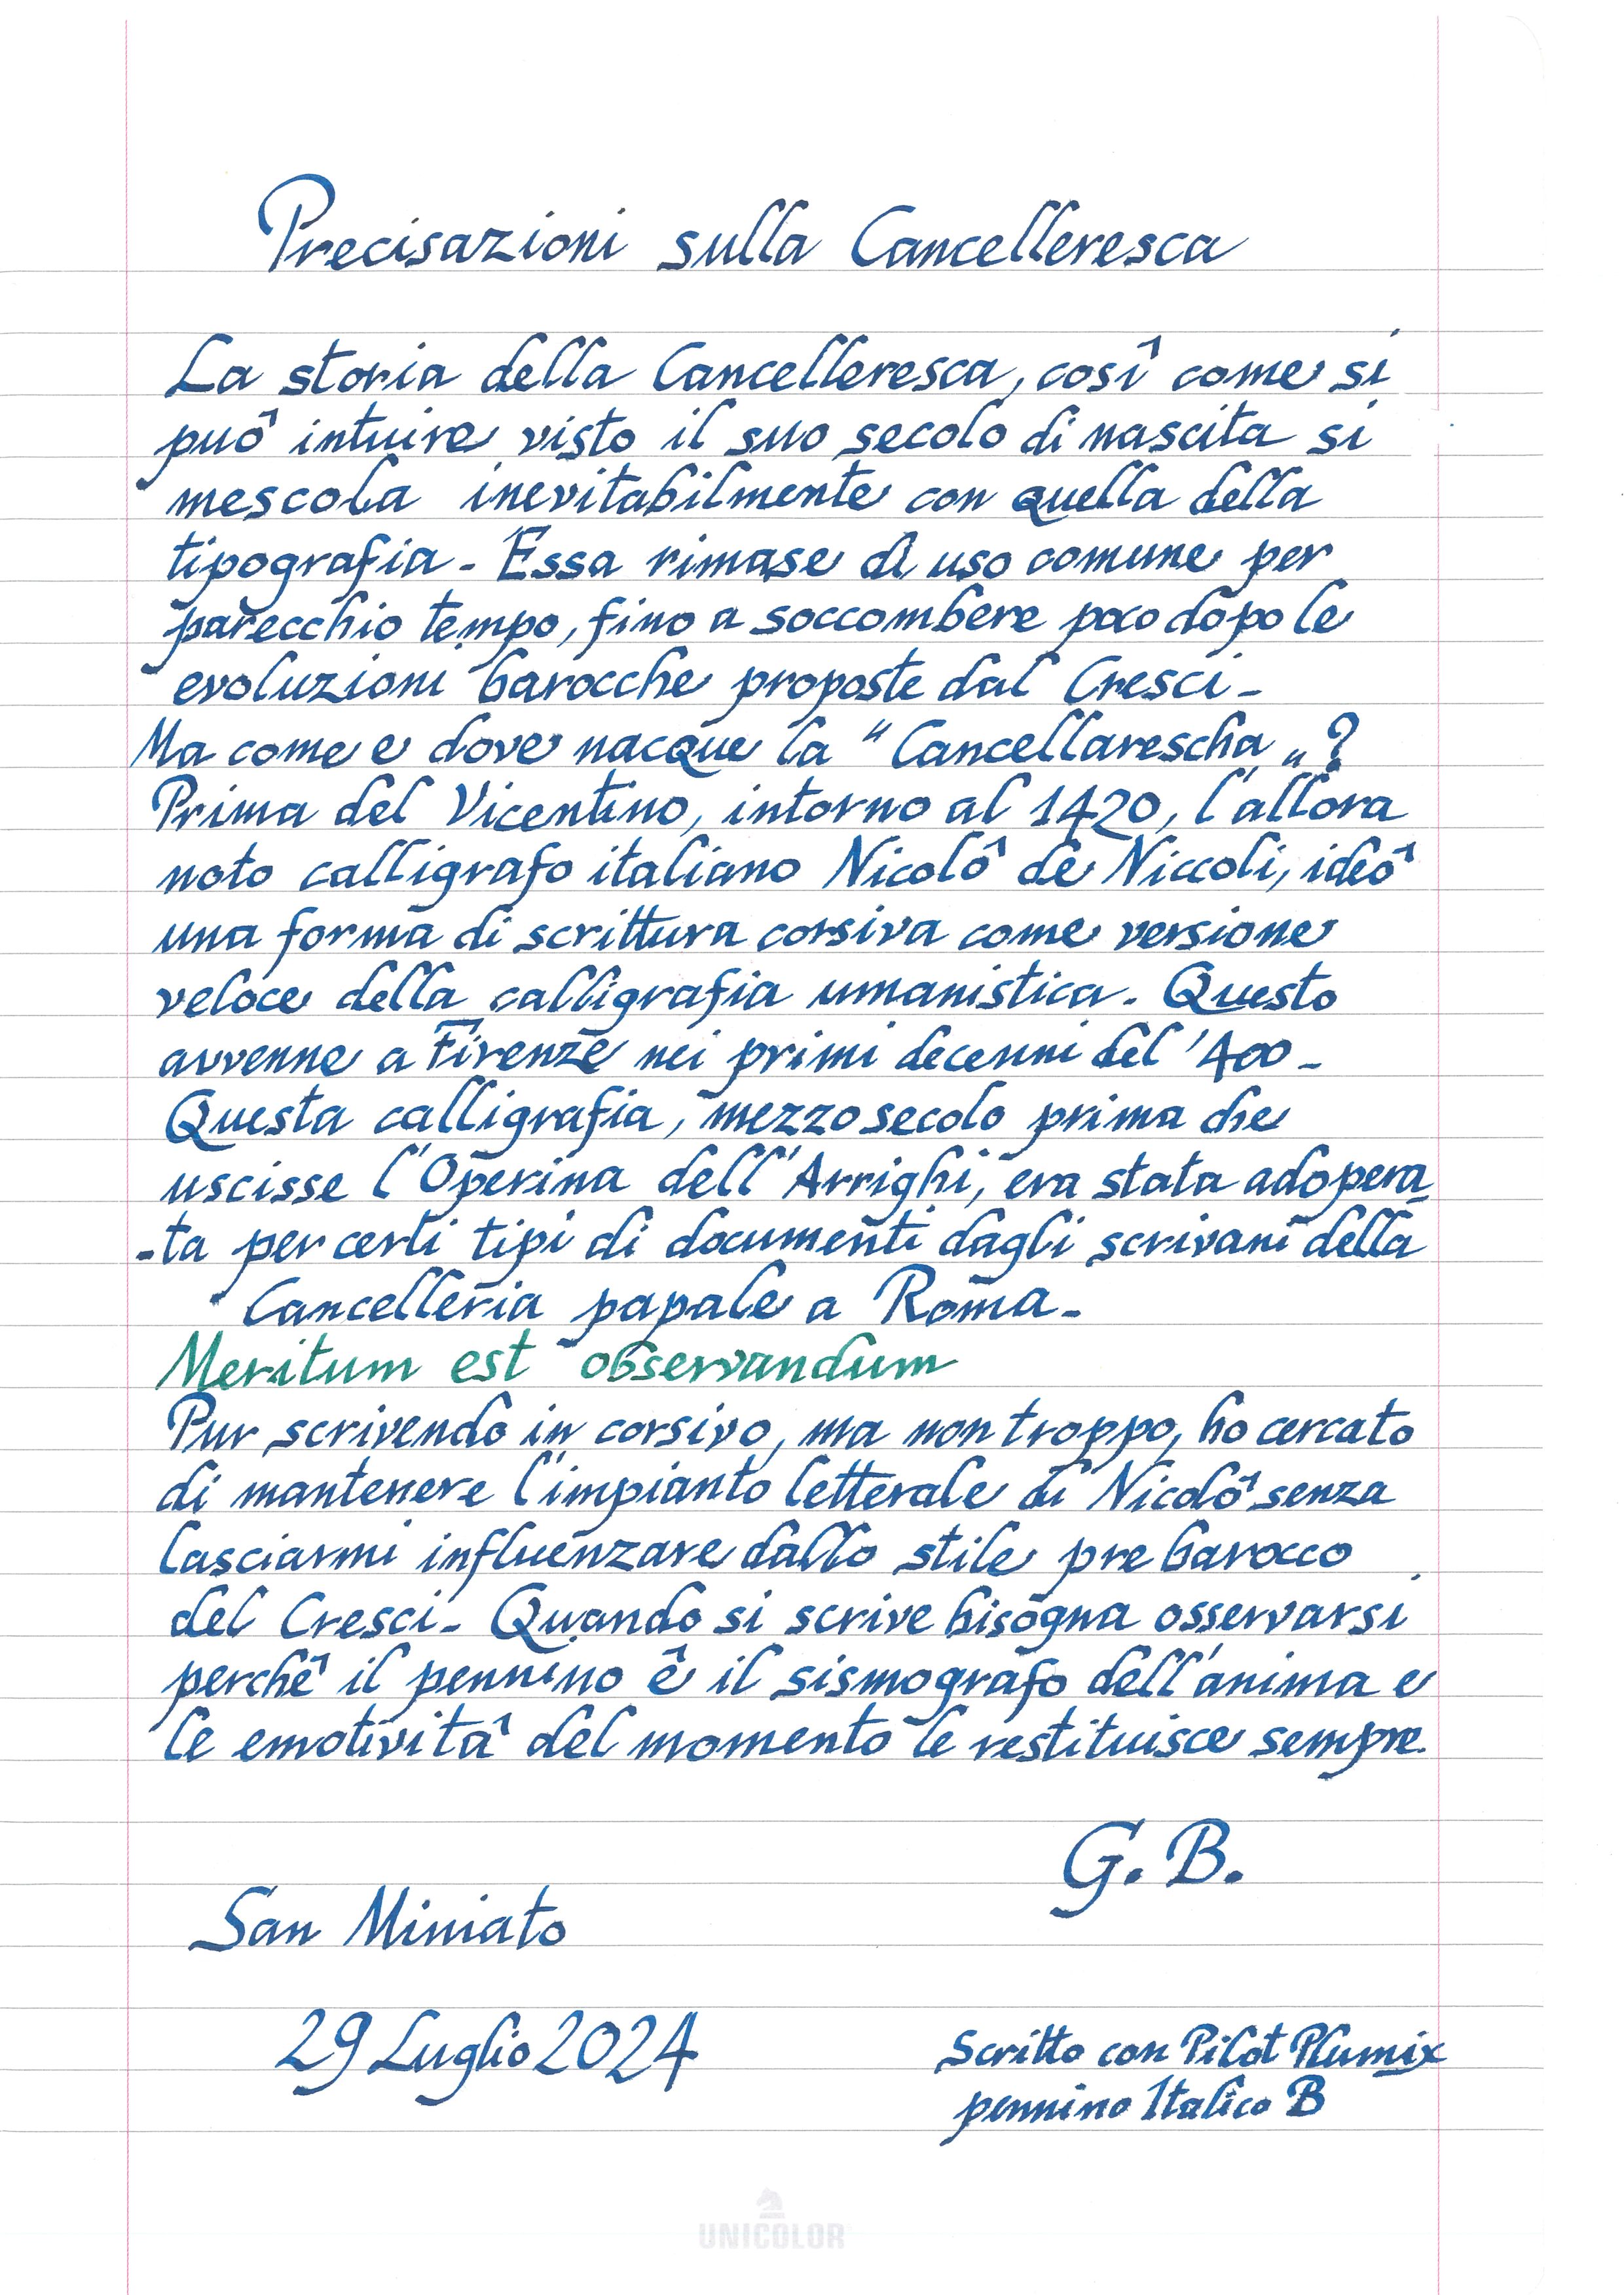 Precisazioni sulla Cancelleresca
La storia della Cancelleresca, così come si
può intuire visto il suo secolo di nascita si
mescola inevitabilmente con quella della
tipografia - Essa rimase di uso comune per
parecchio tempo, fino a soccombere poco dopo le
evoluzioni barocche proposte dal Cresci -
Ma come e dove nacque la " Cancellarescha „ ?
Prima del Vicentino, intorno al 1420, l'allora
noto calligrafo italiano Nicolô de Niccoli, ideô
una forma di scrittura corsiva come versione
veloce della calligrafia umanistica. Questo
avvenne a Firenze nei primi decenni del '400 -
Questa calligrafia, mezzo secolo prima che
uscisse l'Operina dell'Arrighi, era stata adopera
-ta per certi tipi di documenti dagli scrivani della
Cancelleria papale a Roma -
Meritum est observandum
Pur scrivendo in corsivo, ma non troppo, ho cercato
di mantenere l'impianto letterale di Nicolô senza
lasciarmi influenzare dallo stile pre barocco
del Cresci - Quando si scrive bisogna osservarsi
perchê il pennino ê il sismografo dell'anima e
le emotività del momento le restituisce sempre.
G. B.
San Miniato
29 Luglio 2024
Scritto con Pilot Plumix
pennino Italico B
UNICOLOR